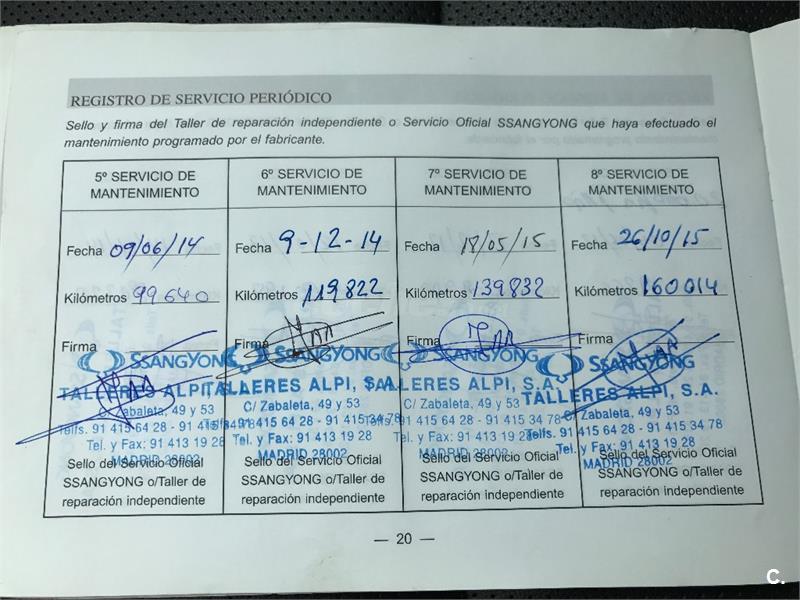 REGISTRO DE SERVICIO PERIÓDICO
Sello y firma del Taller de reparación independiente o Servicio Oficial SSANGYONG que haya efectuado el
mantenimiento programado por el fabricante.
5º SERVICIO DE
MANTENIMIENTO
Fecha 09/06/14
Kilómetros 99640
Firma
SSANGYONG
TALLERES ALPI,
C/ Zabaleta, 49 y 53
Telfs. 91 415 64 28 - 91 415
Tel. y Fax: 91 413 19 28
MADRID 28002
Sello del Servicio Oficial
SSANGYONG o/Taller de
reparación independiente
6º SERVICIO DE
MANTENIMIENTO
Fecha 9-12-14
Kilómetros 119822
Firma
SSANGYONG
TALLERES ALPI, S.A.
C/ Zabaleta, 49 y 53
91 415 64 28 - 91 415 34 78
Tel. y Fax: 91 413 19 28
MADRID 28002
Sello del Servicio Oficial
SSANGYONG o/Taller de
reparación independiente
7º SERVICIO DE
MANTENIMIENTO
Fecha 18/05/15
Kilómetros 139832
Firma
SSANGYONG
TALLERES ALPI, S.A.
C/ Zabaleta, 49 y 53
91 415 64 28 - 91 415 34 78
Tel. y Fax: 91 413 19 28
MADRID 28002
Sello del Servicio Oficial
SSANGYONG o/Taller de
reparación independiente
8º SERVICIO DE
MANTENIMIENTO
Fecha 26/10/15
Kilómetros 160014
Firma
SSANGYONG
TALLERES ALPI, S.A.
C/ Zabaleta, 49 y 53
Telfs. 91 415 64 28 - 91 415 34 78
Tel. y Fax: 91 413 19 28
MADRID 28002
Sello del Servicio Oficial
SSANGYONG o/Taller de
reparación independiente
— 20 —
C.